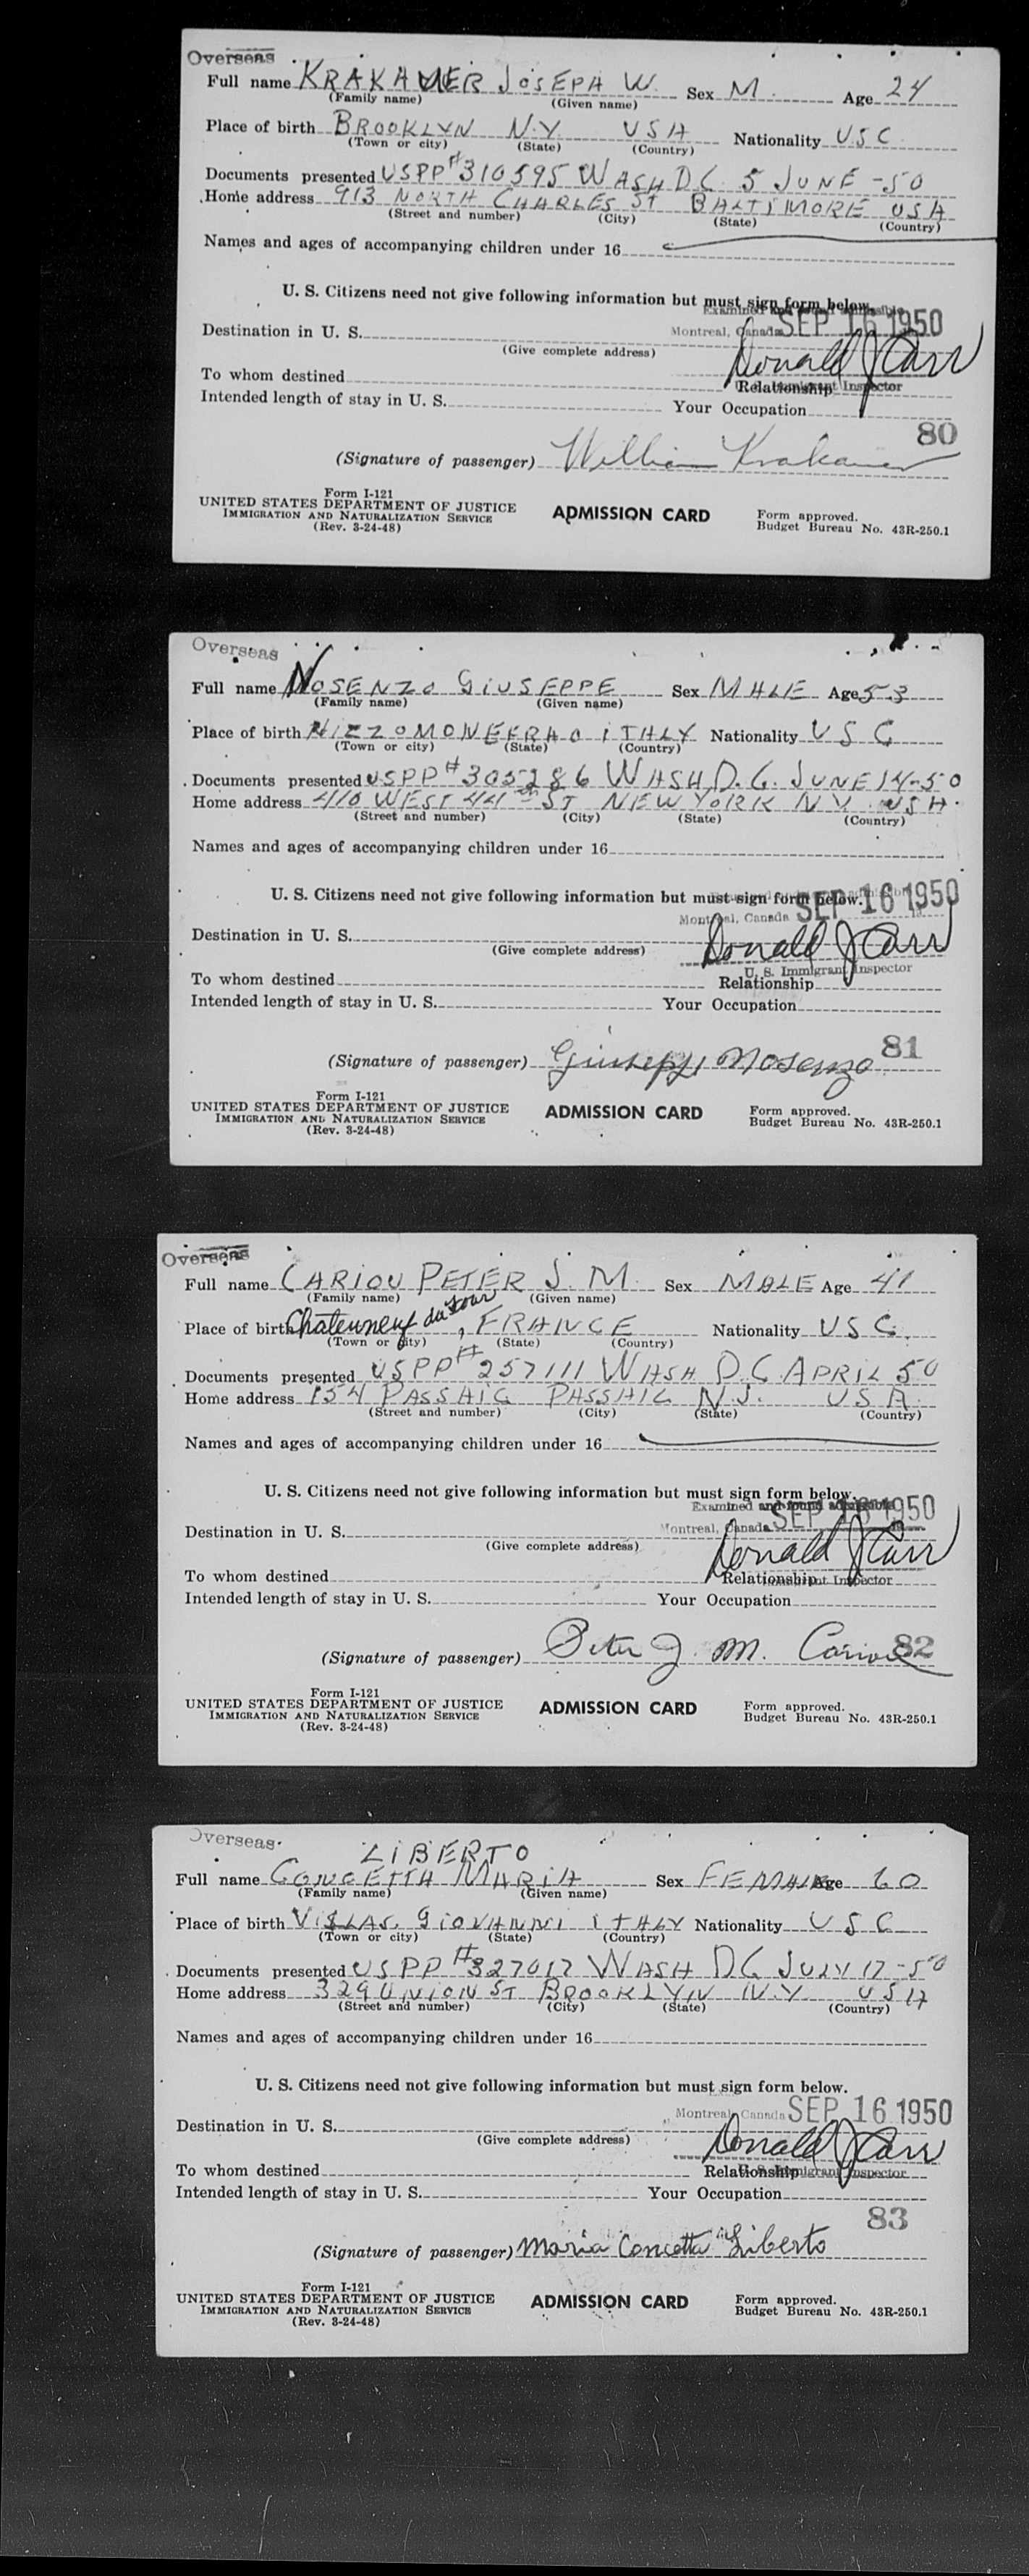 Overseas
Full name KRAKAUER JOSEPH W. Sex M. Age 24
(Family name) (Given name)
Place of birth BROOKLYN N.Y. USA Nationality U.S.C
(Town or city) (State) (Country)
Documents presented USPP #310595 WASH D.C. 5 JUNE -50
Home address 913 NORTH CHARLES ST BALTIMORE USA
(Street and number) (City) (State) (Country)
Names and ages of accompanying children under 16
U. S. Citizens need not give following information but must sign form below.
Examined
Montreal, Canada SEP 16 1950
Destination in U. S.
(Give complete address) Donald J Carr
To whom destined Relationship
Immigrant Inspector
Intended length of stay in U. S. Your Occupation
80
(Signature of passenger) William Krakauer
Form I-121
UNITED STATES DEPARTMENT OF JUSTICE
IMMIGRATION AND NATURALIZATION SERVICE
(Rev. 3-24-48)
ADMISSION CARD
Form approved.
Budget Bureau No. 43R-250.1
Overseas
Full name NOSENZO GIUSEPPE Sex MALE Age 53
(Family name) (Given name)
Place of birth NIZZOMONEFRAO ITALY Nationality U S C
(Town or city) (State) (Country)
Documents presented USPP #305286 WASH, D.C. JUNE 14-50
Home address 410 WEST 44th ST NEW YORK N Y USA.
(Street and number) (City) (State) (Country)
Names and ages of accompanying children under 16
U. S. Citizens need not give following information but must sign form below.
Montreal, Canada SEP 16 1950
Destination in U. S.
(Give complete address) Donald J Carr
U. S. Immigrant Inspector
To whom destined Relationship
Intended length of stay in U. S. Your Occupation
81
(Signature of passenger) Giuseppe Nosenzo
Form I-121
UNITED STATES DEPARTMENT OF JUSTICE
IMMIGRATION AND NATURALIZATION SERVICE
(Rev. 3-24-48)
ADMISSION CARD
Form approved.
Budget Bureau No. 43R-250.1
Overseas
Full name CARIOU PETER J. M. Sex MALE Age 41
(Family name) (Given name)
Place of birth Chateuneuf du Four, FRANCE Nationality U S C.
(Town or city) (State) (Country)
Documents presented USPP #257111 WASH D.C APRIL 50
Home address 154 PASSAIC PASSAIC N.J. USA
(Street and number) (City) (State) (Country)
Names and ages of accompanying children under 16
U. S. Citizens need not give following information but must sign form below.
Examined and found admissible
Montreal, Canada SEP 16 1950
Destination in U. S.
(Give complete address) Donald J Carr
To whom destined Relationship
Inspector
Intended length of stay in U. S. Your Occupation
82
(Signature of passenger) Peter J. M. Cariou
Form I-121
UNITED STATES DEPARTMENT OF JUSTICE
IMMIGRATION AND NATURALIZATION SERVICE
(Rev. 3-24-48)
ADMISSION CARD
Form approved.
Budget Bureau No. 43R-250.1
Overseas
LIBERTO
Full name CONCETTA MARIA Sex FEMALE Age 60
(Family name) (Given name)
Place of birth VILLAS. GIOVANNI ITALY Nationality U S C
(Town or city) (State) (Country)
Documents presented USPP #327017 WASH DC JULY 17-50
Home address 329 UNION ST BROOKLYN N.Y. USA
(Street and number) (City) (State) (Country)
Names and ages of accompanying children under 16
U. S. Citizens need not give following information but must sign form below.
Montreal, Canada SEP 16 1950
Destination in U. S.
(Give complete address) Donald J Carr
To whom destined Relationship
Immigrant Inspector
Intended length of stay in U. S. Your Occupation
83
(Signature of passenger) Maria Concetta Liberto
Form I-121
UNITED STATES DEPARTMENT OF JUSTICE
IMMIGRATION AND NATURALIZATION SERVICE
(Rev. 3-24-48)
ADMISSION CARD
Form approved.
Budget Bureau No. 43R-250.1